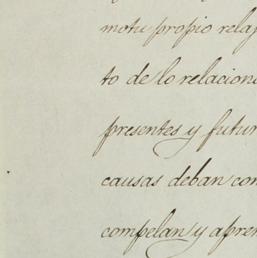 motu propio relaj
to de lo relacion
presentes y futur
causas deban con
compelan y apren